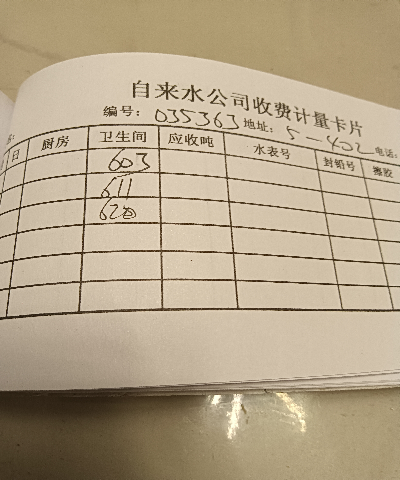 自来水公司收费计量卡片
编号: 035363 地址: 5-402 电话:
日 厨房 卫生间 应收吨 水表号 封铅号 擦胶
603
611
620